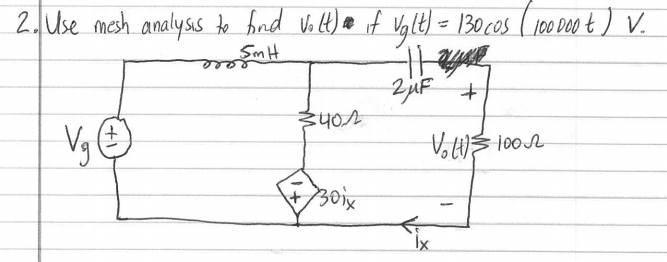 2. Use mesh analysis to find Vo(t) if Vg(t) = 130 cos (100 000 t) V.
5mH
2μF
+
40Ω
Vg
+
-
Vo(t)
100Ω
-
+
30ix
-
ix